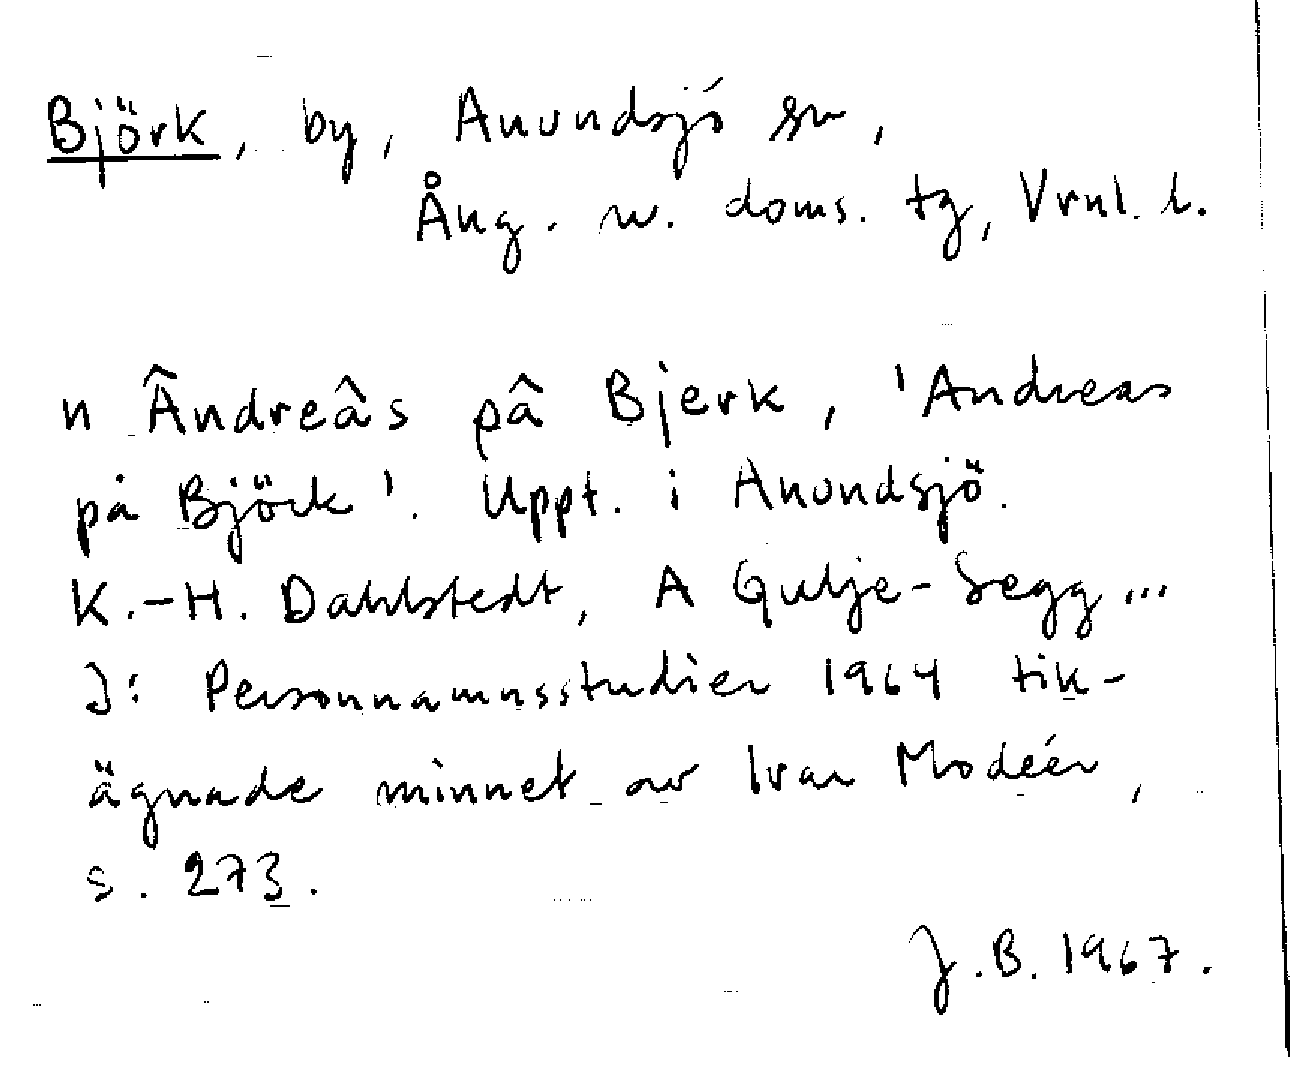 Björk, by, Anundsjö sn,
Ång. n. doms. tg, Vrnl. l.
n Ândreâs på̂ Bjerk, 'Andreas
på Björk'. Uppt. i Anundsjö.
K.-H. Dahlstedt, A Gulje-Segg...
I: Personnamnsstudier 1964 till-
ägnade minnet av Ivar Modéer,
s. 273.
J.B. 1967.